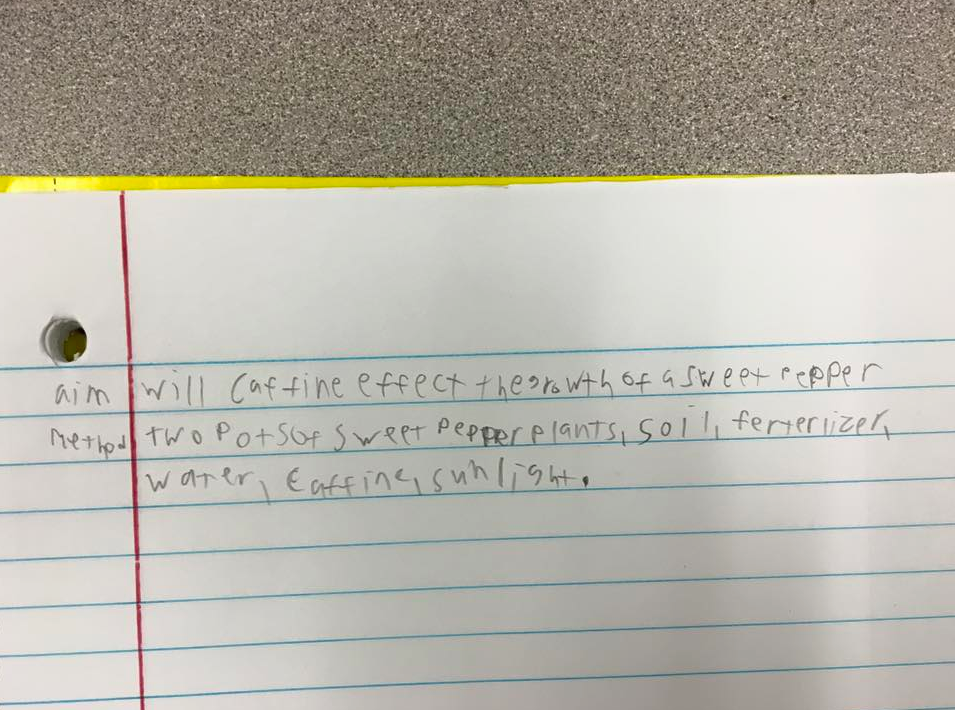 aim will Caffine effect the growth of a sweet pepper
Method two Pots of sweet pepper plants, soil, ferterlizer,
water, caffine, sunlight.